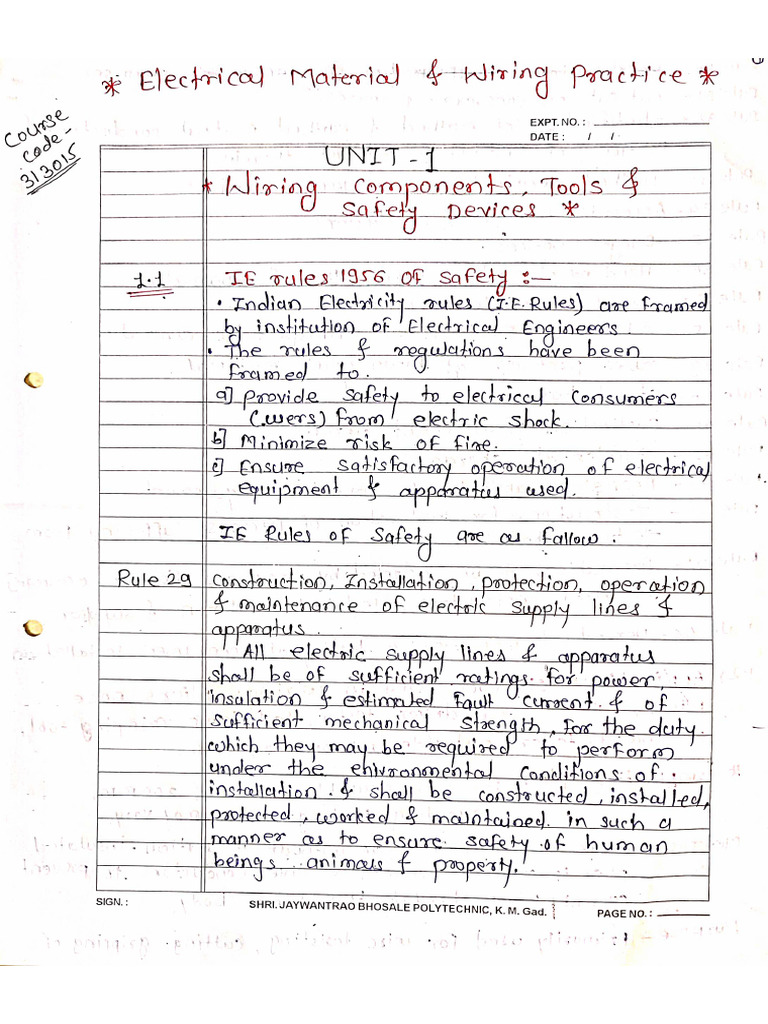 * Electrical Material & Wiring Practice *
Course
Code -
313015
EXPT. NO. :
DATE : / /
UNIT - 1
* Wiring Components, Tools &
Safety Devices *
1.1 IE rules 1956 of safety :-
• Indian Electricity rules (I.E. Rules) are framed
by institution of Electrical Engineers
• The rules & regulations have been
framed to.
a] Provide safety to electrical consumers
(users) from electric shock.
b] Minimize risk of fire.
c] Ensure satisfactory operation of electrical
equipment & apparatus used.
IE Rules of safety are as follow :
Rule 29 Construction, Installation, protection, operation
& maintenance of electric supply lines &
apparatus.
All electric supply lines & apparatus
shall be of sufficient ratings for power,
insulation & estimated fault current & of
sufficient mechanical strength, for the duty
which they may be required to perform
under the ehivronmental conditions of
installation & shall be constructed, installed,
protected, worked & maintained in such a
manner as to ensure safety of human
beings animals & property.
SIGN. :
SHRI. JAYWANTRAO BHOSALE POLYTECHNIC, K. M. Gad.
PAGE NO. :